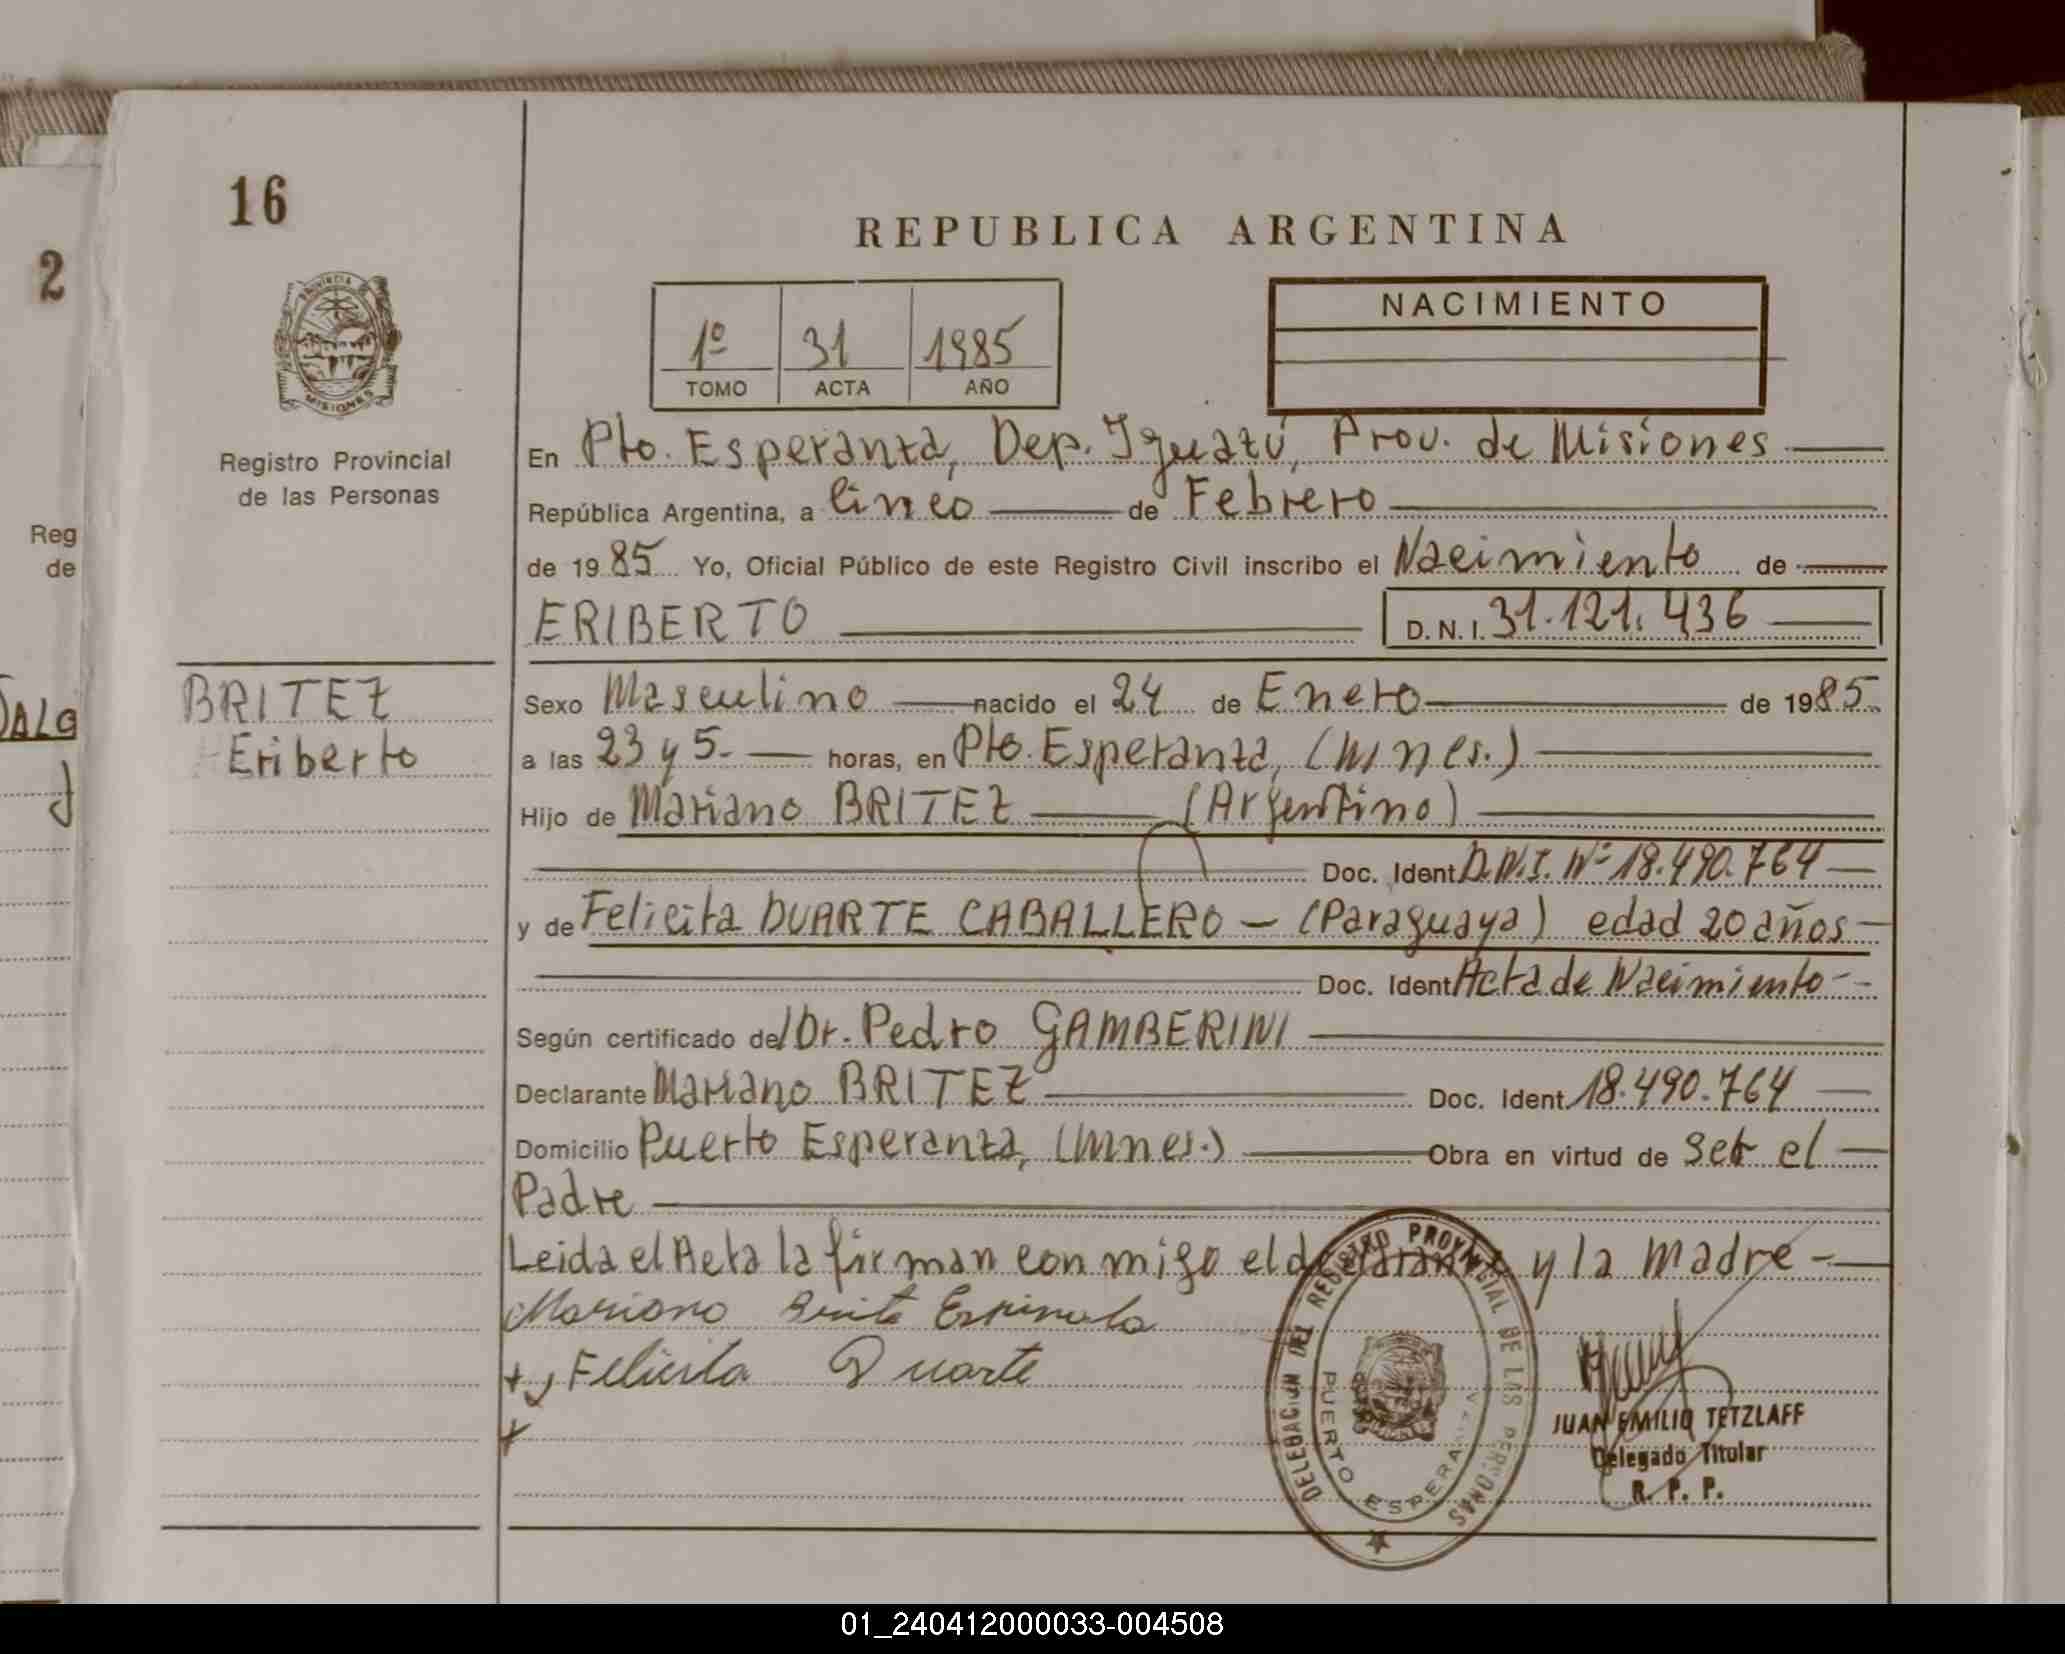 16
2
REPUBLICA ARGENTINA
PROVINCIA DE
MISIONES
1º 31 1985
TOMO ACTA AÑO
NACIMIENTO
Registro Provincial
de las Personas
Reg
de
En Pto. Esperanza, Dep. Iguazú, Prov. de Misiones
República Argentina, a Cinco de Febrero
de 1985 Yo, Oficial Público de este Registro Civil inscribo el Nacimiento de
ERIBERTO D.N.I. 31.121.436
BRITEZ
Eriberto
Sexo Masculino nacido el 24 de Enero de 1985
a las 23 y 5 horas, en Pto. Esperanza, (Mnes.)
Hijo de Mariano BRITEZ (Argentino)
Doc. Ident D.N.I. Nº 18.490.764
y de Felicita DUARTE CABALLERO – (Paraguaya) edad 20 años
Doc. Ident Acta de Nacimiento
Según certificado del Dr. Pedro GAMBERINI
Declarante Mariano BRITEZ Doc. Ident 18.490.764
Domicilio Puerto Esperanza, (Mnes.) Obra en virtud de ser el
Padre
Leida el Acta la firman con migo el declarante y la madre
Mariano Brite Espinola
+ y Felicita Duarte
+
DELEGACION DEL REGISTRO PROVINCIAL DE LAS PERSONAS
PUERTO ESPERANZA
JUAN EMILIO TETZLAFF
Delegado Titular
R. P. P.
01_240412000033-004508